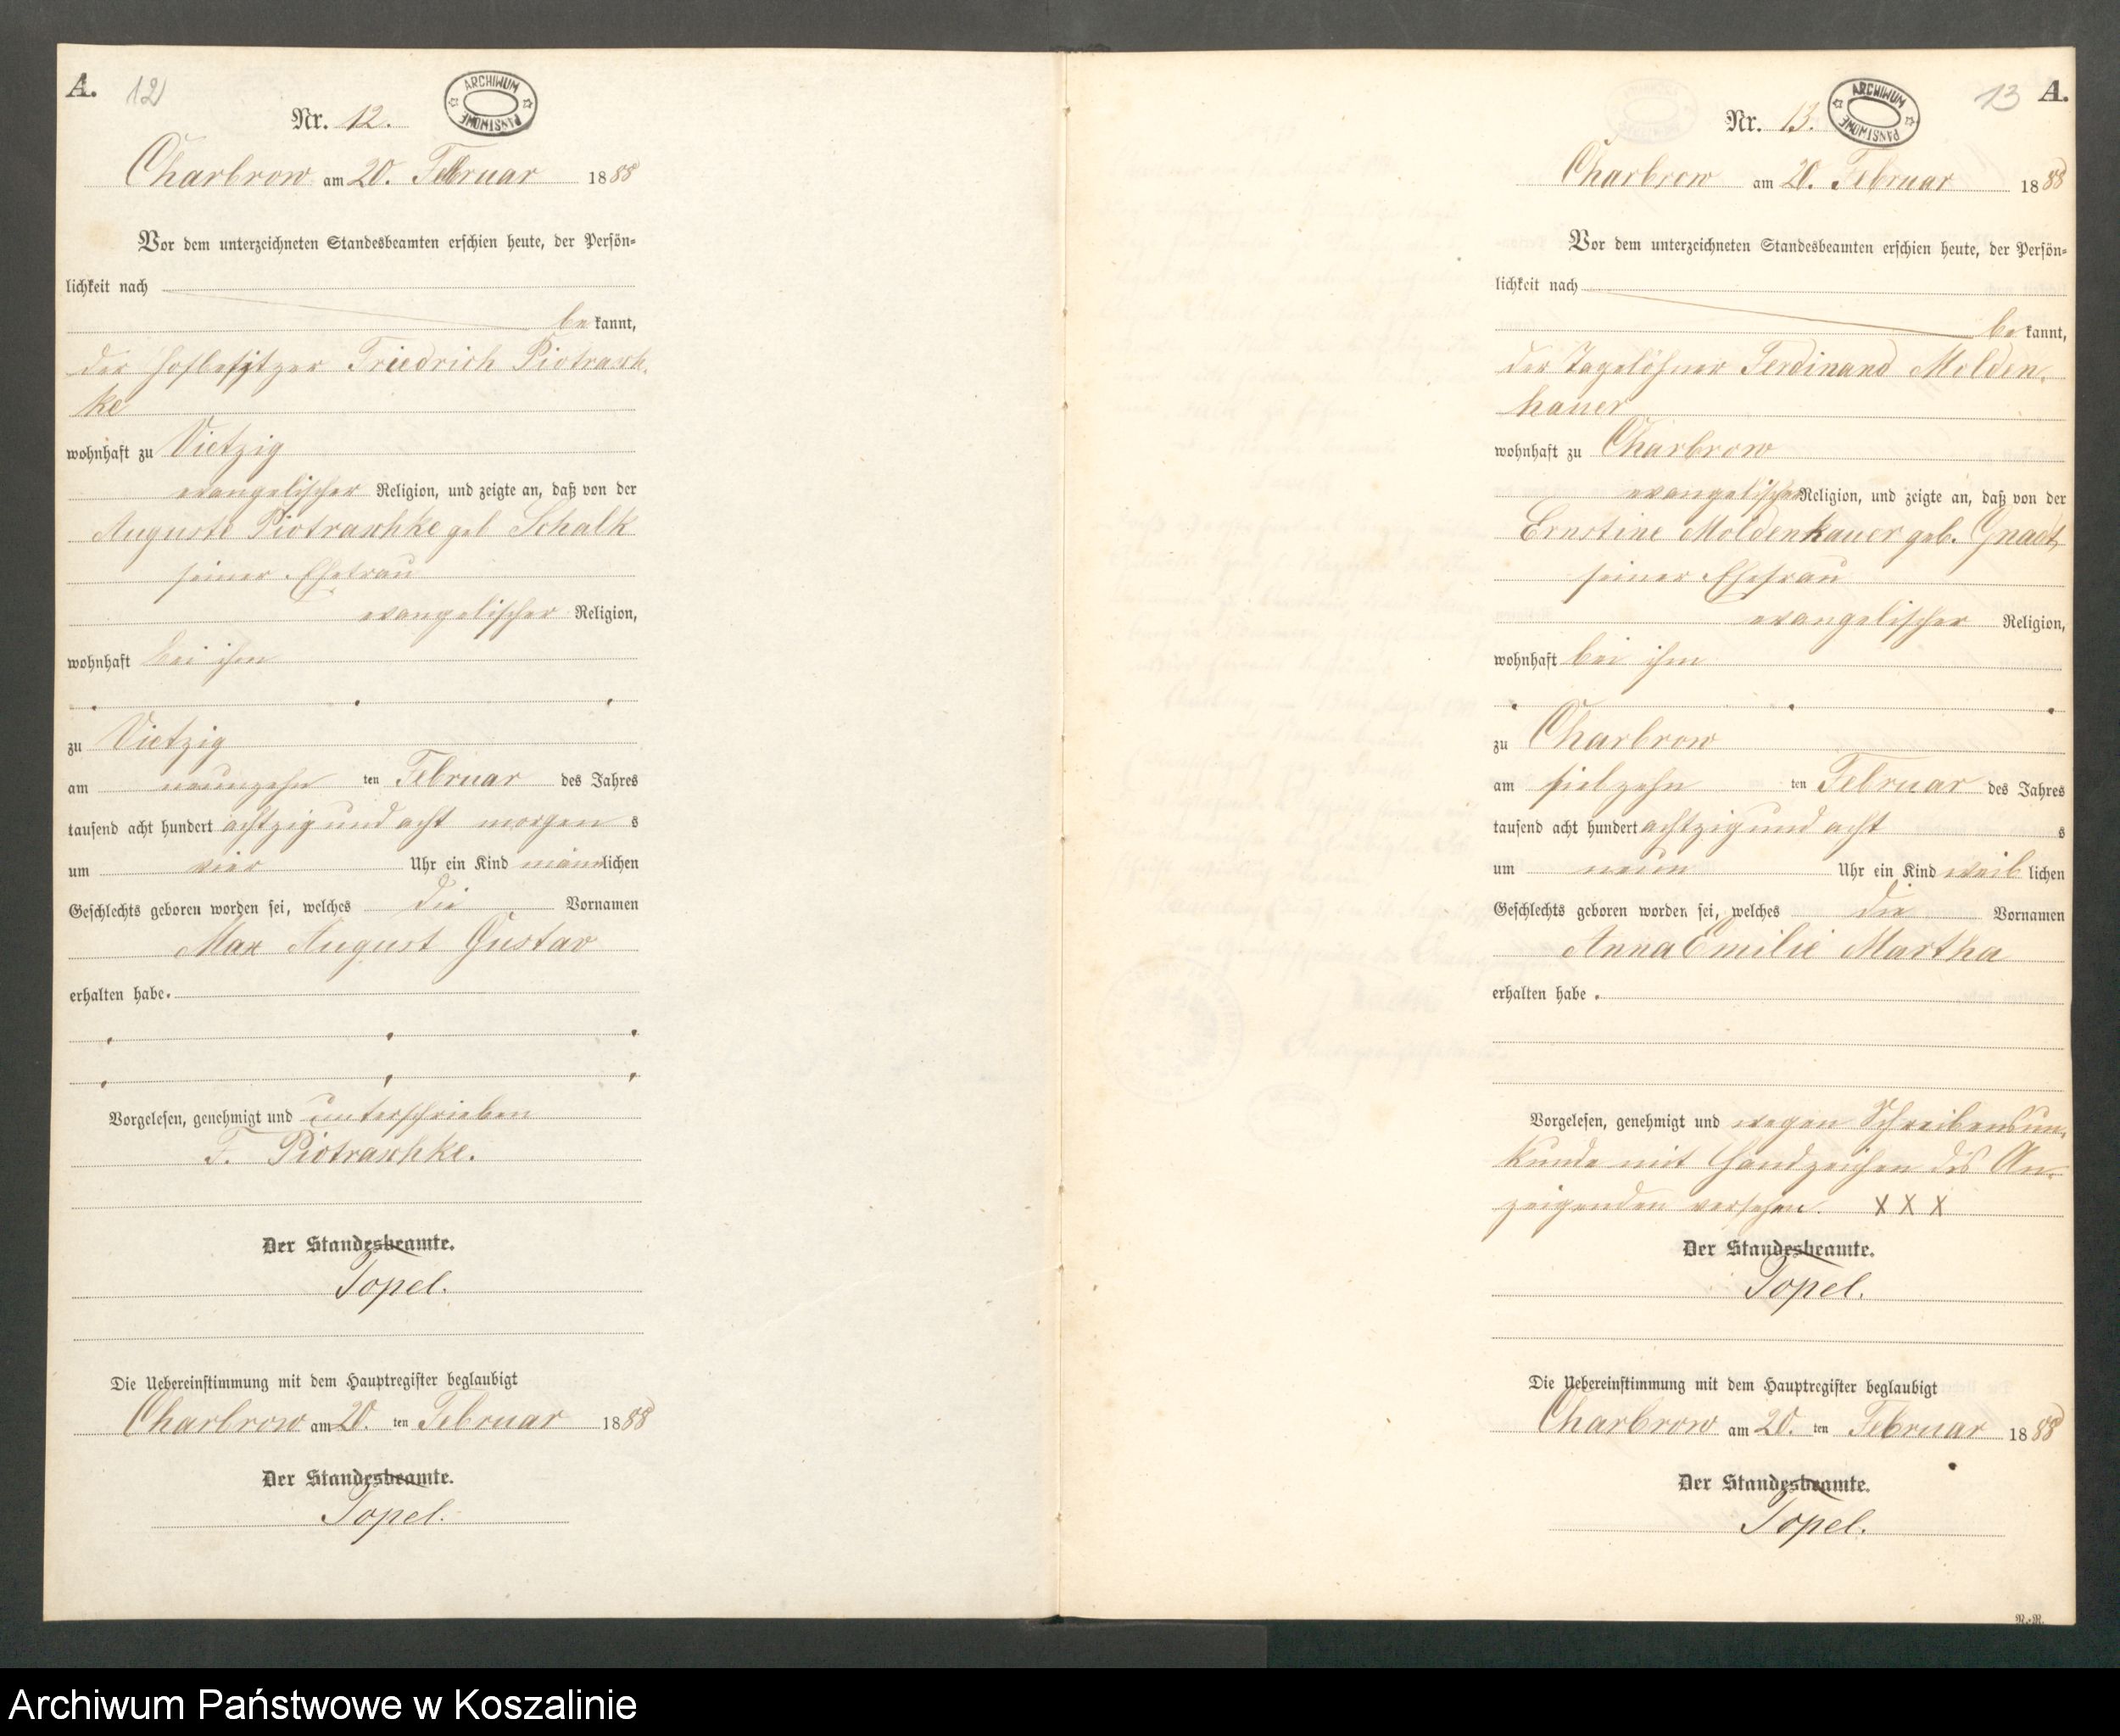 A. 12
ARCHIWUM PAŃSTWOWE
Nr. 12.
Charbrow am 20. Februar 1888
Vor dem unterzeichneten Standesbeamten erschien heute, der Persön=
lichkeit nach
be kannt,
der Hofbesitzer Friedrich Piotrasch-
ke
wohnhaft zu Vietzig
evangelischer Religion, und zeigte an, daß von der
Auguste Piotraschke geb Schalk
seiner Ehefrau
evangelischer Religion,
wohnhaft bei ihm
zu Vietzig
am neunzehn ten Februar des Jahres
tausend acht hundert achtzig und acht morgen s
um vier Uhr ein Kind männlichen
Geschlechts geboren worden sei, welches die Vornamen
Max August Gustav
erhalten habe.
Vorgelesen, genehmigt und unterschrieben
F. Piotraschke.
Der Standesbeamte.
Topel.
Die Uebereinstimmung mit dem Hauptregister beglaubigt
Charbrow am 20. ten Februar 1888
Der Standesbeamte.
Topel.
13 A.
ARCHIWUM PAŃSTWOWE
Nr. 13.
Charbrow am 20. Februar 1888
Vor dem unterzeichneten Standesbeamten erschien heute, der Persön=
lichkeit nach
be kannt,
der Tagelöhner Ferdinand Molden-
hauer
wohnhaft zu Charbrow
evangelischer Religion, und zeigte an, daß von der
Ernstine Moldenhauer geb. Gnadt,
seiner Ehefrau
evangelischer Religion,
wohnhaft bei ihm
zu Charbrow
am siebzehn ten Februar des Jahres
tausend acht hundert achtzig und acht s
um neun Uhr ein Kind weib lichen
Geschlechts geboren worden sei, welches die Vornamen
Anna Emilie Martha
erhalten habe.
Vorgelesen, genehmigt und wegen Schreibensun-
kunde mit Handzeichen des An-
zeigenden versehen. X X X
Der Standesbeamte.
Topel.
Die Uebereinstimmung mit dem Hauptregister beglaubigt
Charbrow am 20. ten Februar 1888
Der Standesbeamte.
Topel.
Archiwum Państwowe w Koszalinie